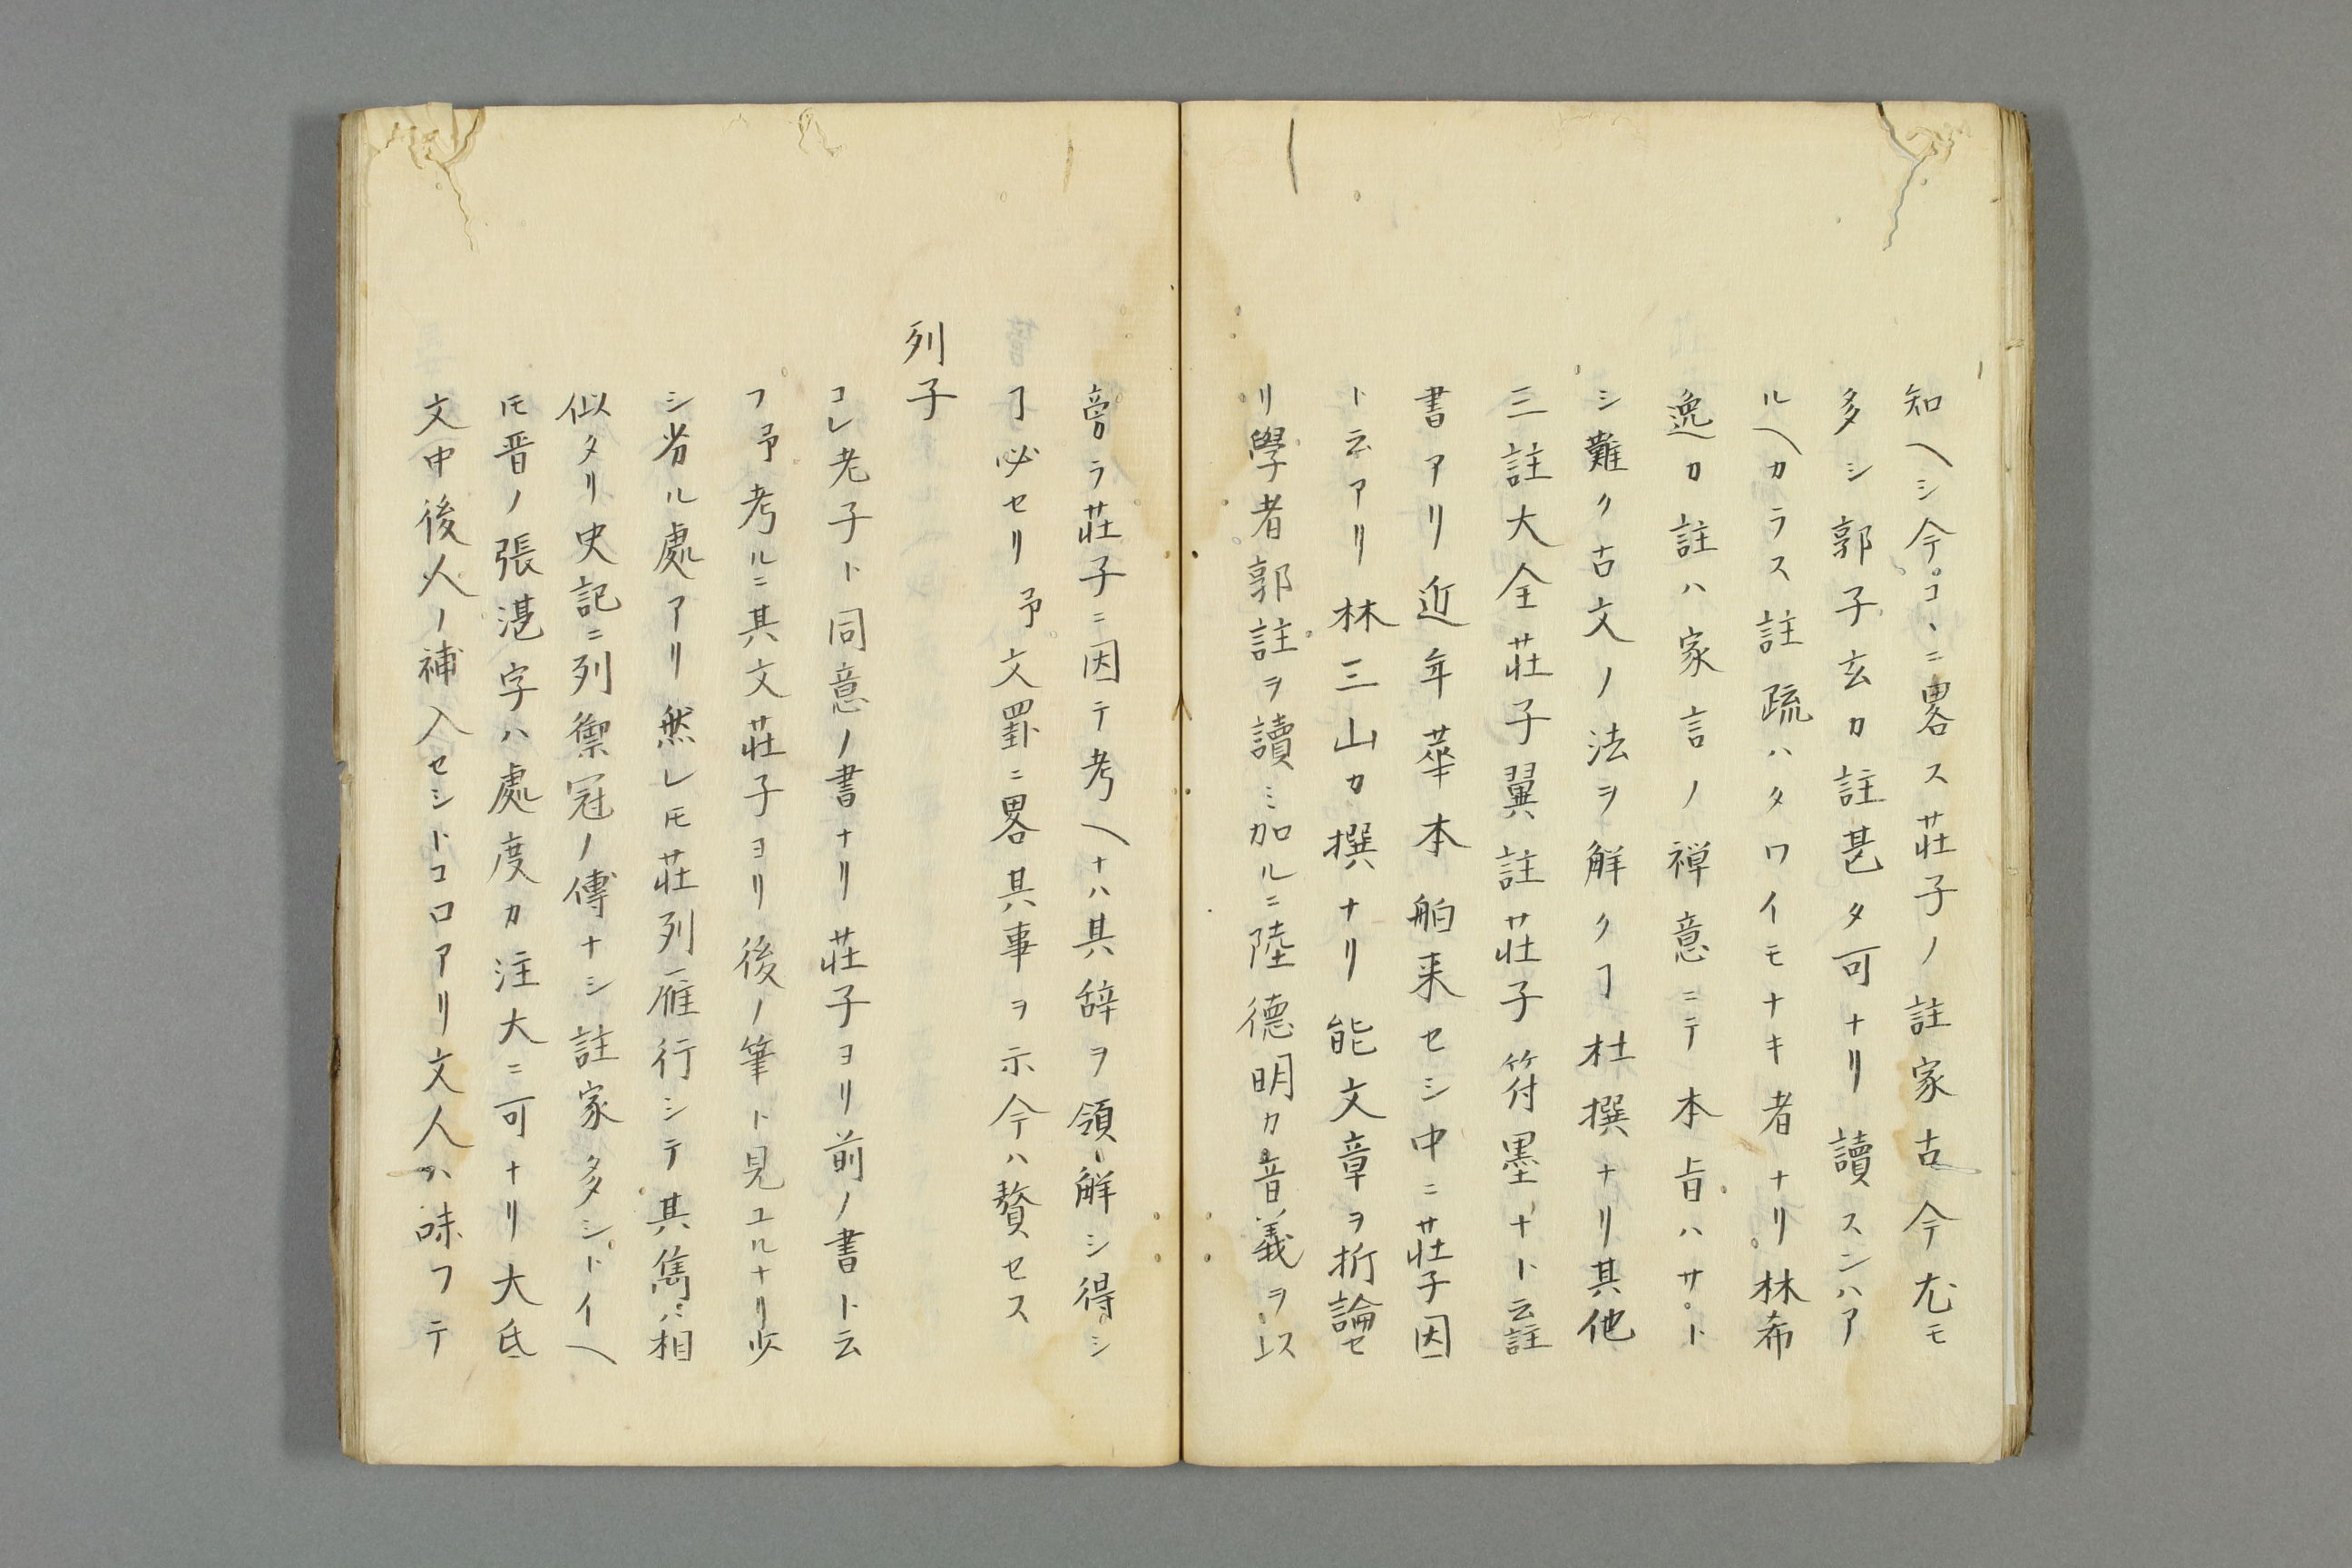 知ヘシ今コヽニ畧ス莊子ノ註家古今尤モ
多シ郭子玄カ註甚タ可ナリ讀スンハア
ルヘカラス註疏ハタワイモナキ者ナリ林希
逸カ註ハ家言ノ禅意ニテ本旨ハサト
シ難ク古文ノ法ヲ解クヿ杜撰ナリ其他
三註大全莊子翼註莊子符墨ナト云註
書アリ近年華本舶来セシ中ニ莊子因
ト云アリ林三山カ撰ナリ能文章ヲ折論セ
リ學者郭註ヲ讀ミ加ルニ陸德明カ音義ヲ以ス
旁ラ莊子ニ因テ考ヘナハ其辞ヲ領解シ得シ
ヿ必セリ予文罫ニ畧其事ヲ示今ハ贅セス
列子
コレ老子ト同意ノ書ナリ莊子ヨリ前ノ書ト云
フ予考ルニ其文莊子ヨリ後ノ筆ト見ユルナリ少
シ劣ル處アリ然レ𪜈莊列雁行シテ其雋ハ相
似タリ史記ニ列禦冠ノ傳ナシ註家多シトイヘ
𪜈晋ノ張湛字ハ處度カ注大ニ可ナリ大氐
文中後人ノ補入セシトコロアリ文人ハ味フテ